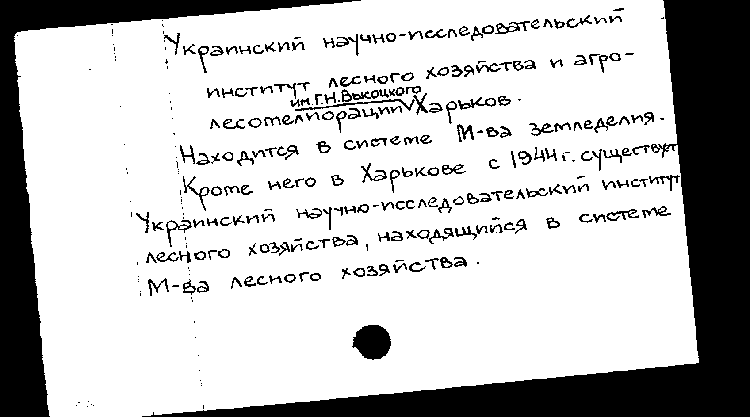 Украинский научно-исследовательский
институт лесного хозяйства и агро-
им. Г.Н. Высоцкого
лесомелиорации Харьков.
Находится в системе М-ва земледелия.
Кроме него в Харькове с 1944 г. существует
Украинский научно-исследовательский институт
лесного хозяйства, находящийся в системе
М-ва лесного хозяйства.